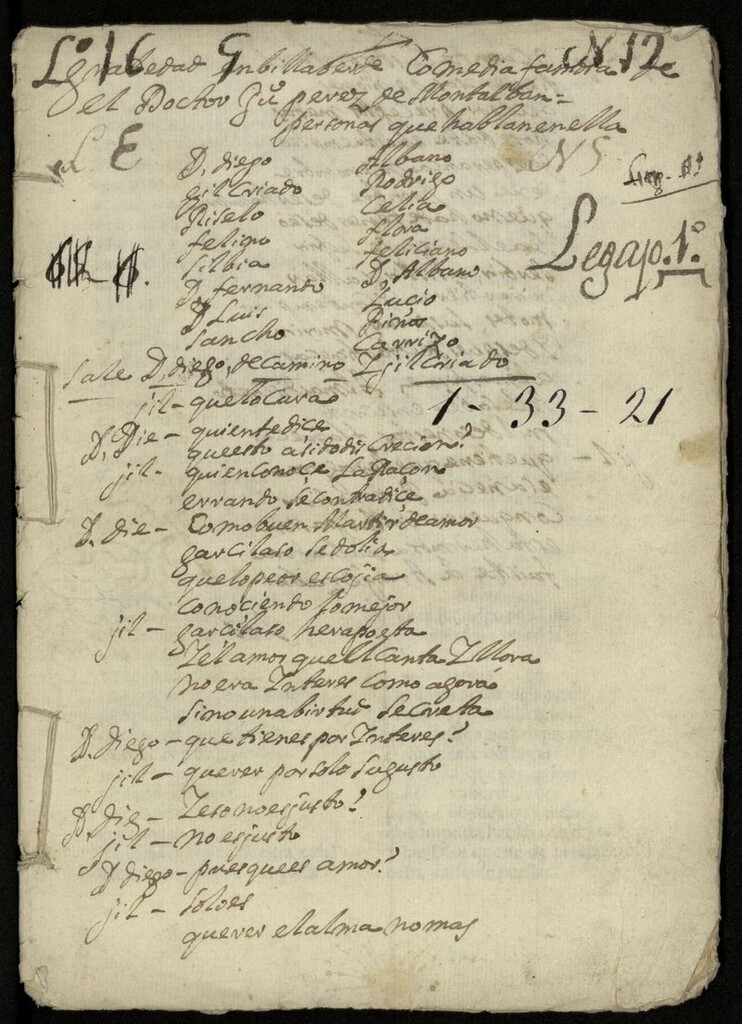 Lo 16 G N 12
La gravedad En billaberde Comedia famosa de
el Doctor Ju° perez de Montalban =
personas que hablan en ella
L E
N 5
D. diego Albano
gil Criado Rodrigo
Riselo Celia
felipo flora
silbia feliciano
D. fernando D. Albano
D Luis Lucio
Sancho Carrizo
Legajo. 1°
Sale D. diego, de Camino Y jil Criado
1 - 33 - 21
jil - que locura
D. Die - quien te dice
que esto a sido discrecion?
jil - quien conoçe La Raçon
errando se contradiçe
D. die - Como buen Martir de amor
garcilaso se dolia
que lo peor escojia
conociendo lo mejor
jil - garcilaso hera poeta
Y el amor que el Canta Y llora
no era Ynteres como agora
sino una birtud secreta
D. diego - que tienes por Ynteres?
jil - querer por solo su gusto
D. die - Y eso no es justo?
jil - no es justo
D diego - pues que es amor?
jil - solo es
querer el alma no mas